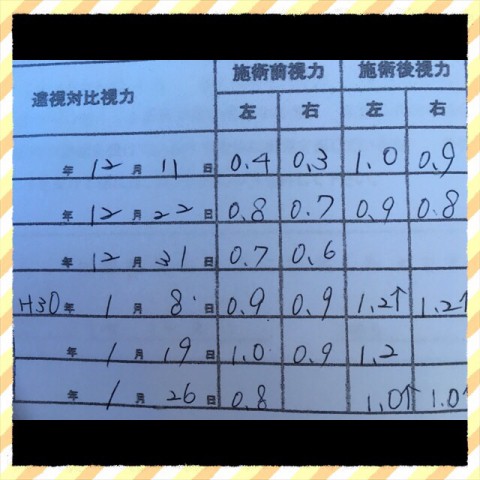 施術前視力 施術後視力
遠視対比視力 左 右 左 右
年 12 月 11 日 0.4 0.3 1.0 0.9
年 12 月 22 日 0.8 0.7 0.9 0.8
年 12 月 31 日 0.7 0.6
H30年 1 月 8 日 0.9 0.9 1.2↑ 1.2↑
年 1 月 19 日 1.0 0.9 1.2
年 1 月 26 日 0.8 1.0↑ 1.0↑